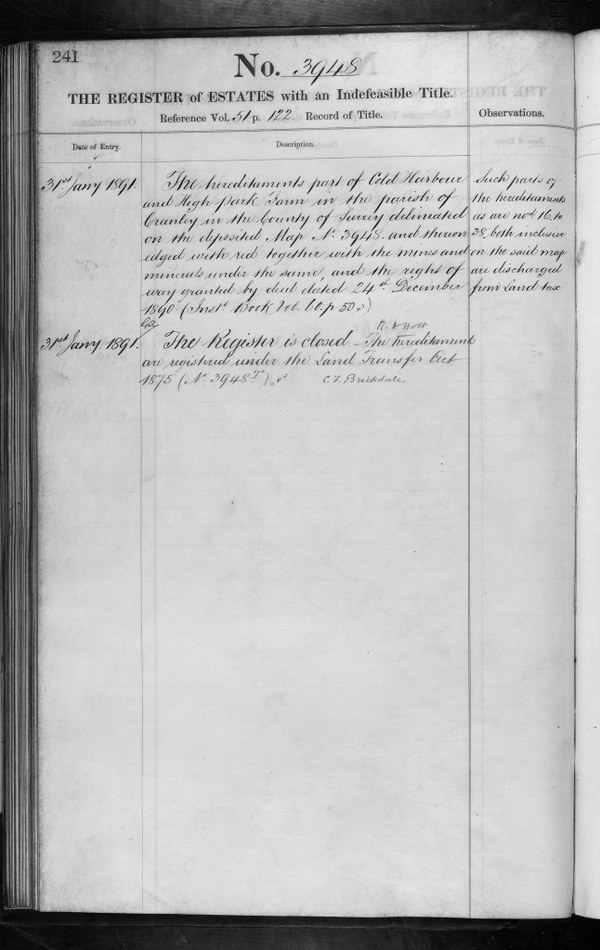 241
No. 3948
THE REGISTER of ESTATES with an Indefeasible Title.
Reference Vol. 51 p. 122. Record of Title.
Observations.
Date of Entry.
Description.
31st Jany 1891.
The hereditaments part of Cold Harbour
and High Park Farm in the parish of
Cranley in the County of Surrey delineated
on the deposited Map No. 3948. and thereon
edged with red together with the mines and
minerals under the same, and the right of
way granted by deed dated 24th December
1890 (Inst. Book Vol. 60. p 50.)
Such parts of
the hereditaments
as are nod 16 to
38. both inclusive
on the said map
are discharged
from Land tax
31st Jany 1891.
The Register is closed - The hereditament
are registered under the Land Transfer Act
1875 (No. 3948 T)
C. F. Brickdale